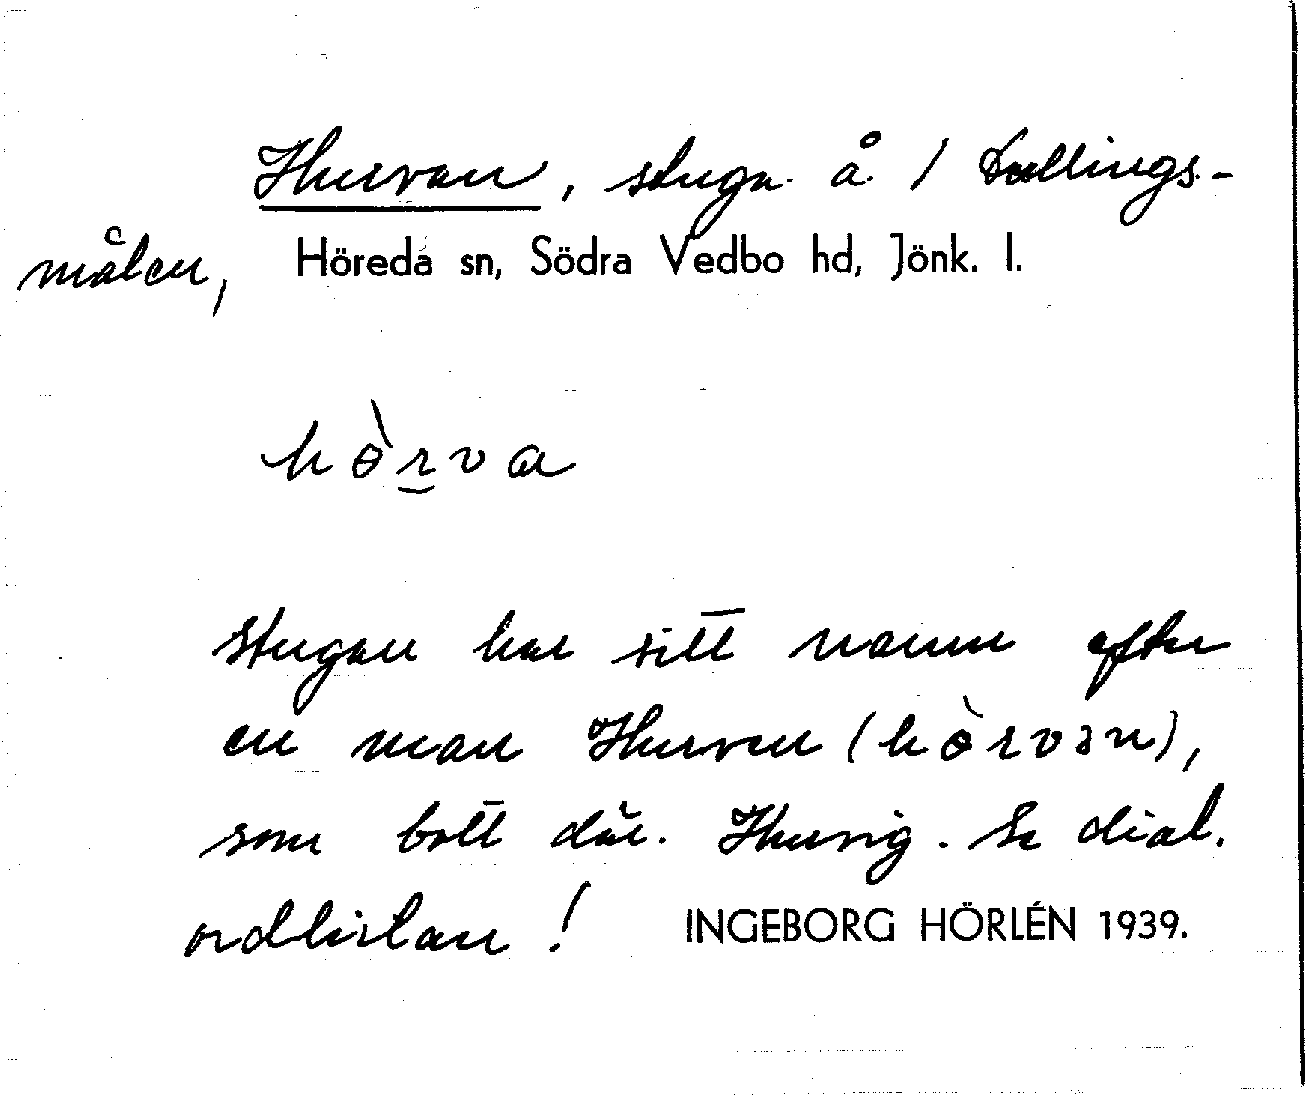 Hurvan, stuga å / Lallings-
målen, Höreda sn, Södra Vedbo hd, Jönk. l.
hɵ̀rva
Stugan har sitt namn efter
en man Hurven (hɵ̀rvən),
som bott där. Hurvig. Se dial.
ordlistan! INGEBORG HÖRLÉN 1939.